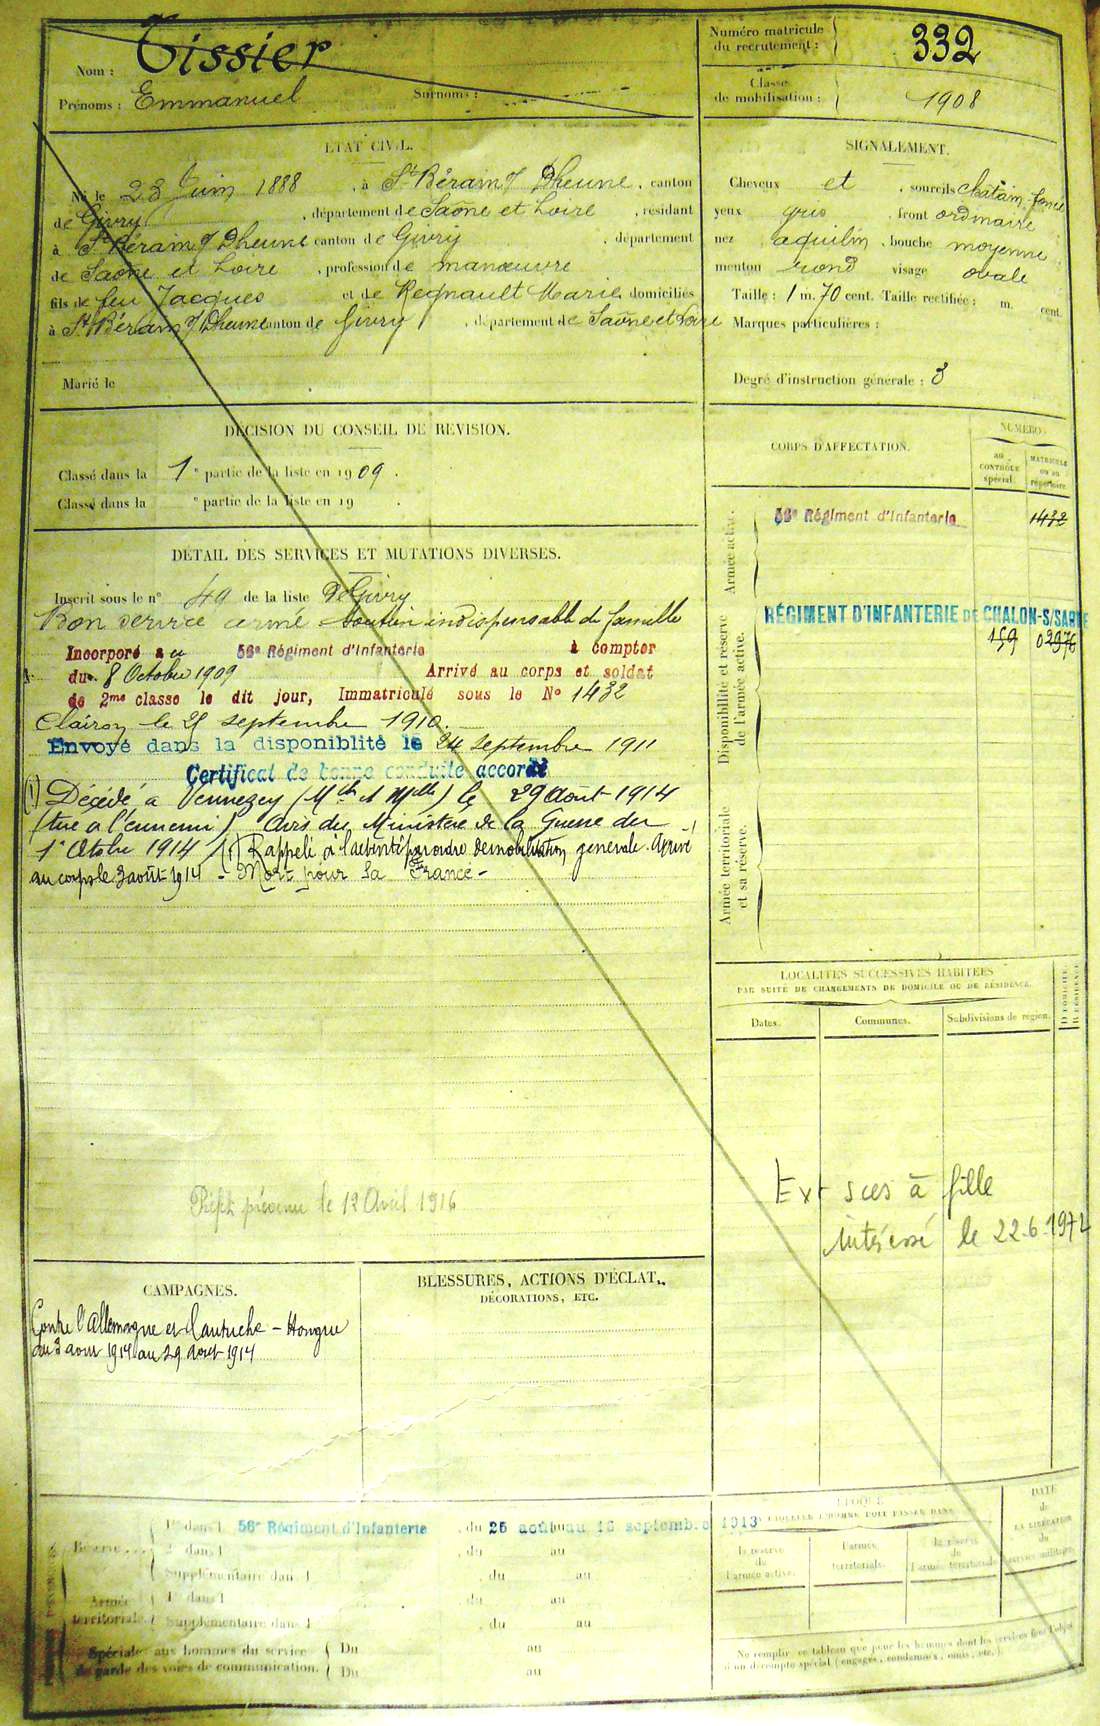 Nom : Tissier
Prénoms : Emmanuel Surnoms :
Numéro matricule du recrutement : 332
Classe de mobilisation : 1908
ÉTAT CIVIL.
Né le 23 Juin 1888, à St Bérain s/ Dheune, canton
de Givry, département de Saône et Loire, résidant
à St Bérain s/ Dheune canton de Givry, département
de Saône et Loire, profession de manœuvre
fils de feu Jacques et de Regnault Marie domiciliés
à St Bérain s/ Dheune canton de Givry, département de Saône et Loire
Marié le
SIGNALEMENT.
Cheveux et, sourcils chatain foncé
yeux gris, front ordinaire
nez aquilin, bouche moyenne
menton rond visage ovale
Taille : 1 m. 70 cent. Taille rectifiée : m. cent.
Marques particulières :
Degré d'instruction générale : 3
DÉCISION DU CONSEIL DE RÉVISION.
Classé dans la 1e partie de la liste en 1909.
Classé dans la e partie de la liste en 19 .
DÉTAIL DES SERVICES ET MUTATIONS DIVERSES.
Inscrit sous le n° 49 de la liste de Givry
Bon service armé soutien indispensable de famille
Incorporé au 56e Régiment d'Infanterie à compter
du 8 Octobre 1909 Arrivé au corps et soldat
de 2me classe le dit jour, Immatriculé sous le No 1432
Clairon le 21 septembre 1910.
Envoyé dans la disponiblité le 24 septembre 1911
Certificat de bonne conduite accordé
(1) Décédé à Vennezey (Mthe et Mlle) le 29 Août 1914
(tué à l'ennemi) Avis du Ministère de la Guerre du
1er Otobre 1914 / (1) Rappelé à l'activité par ordre de mobilisation générale. Arrivé
au corps le 3 août 1914 - Mort pour la France -
Préft prévenu le 12 Avril 1916
CORPS D'AFFECTATION.
NUMÉRO
au CONTRÔLE spécial.
MATRICULE ou au répertoire.
Armée active.
56e Régiment d'Infanterie 1432
Disponibilité et réserve de l'armée active.
RÉGIMENT D'INFANTERIE DE CHALON-S/SAÔNE
159 03976
Armée territoriale et sa réserve.
LOCALITÉS SUCCESSIVES HABITÉES
PAR SUITE DE CHANGEMENTS DE DOMICILE OU DE RÉSIDENCE.
Dates. Communes. Subdivisions de région. DOMICILE. RÉSIDENCE
Ext sces à fille
intéressé le 22.6.1972
CAMPAGNES.
Contre l'Allemagne et l'autriche - Hongrie
du 3 aout 1914 au 29 aout 1914
BLESSURES, ACTIONS D'ÉCLAT,
DÉCORATIONS, ETC.
Réserve
1re dans l 56e Régiment d'Infanterie, du 25 août au 16 septembre 1913
2e dans l , du au
Supplémentaire dans l , du au
Armée territoriale.
1re dans l , du au
Supplémentaire dans l , du au
Spéciale aux hommes du service Du au
de garde des voies de communication. Du au
ÉPOQUE
À LAQUELLE L'HOMME DOIT PASSER DANS
la réserve de l'armée active.
l'armée territoriale.
la réserve de l'armée territoriale
DATE de LA LIBÉRATION du service militaire.
Ne remplir ce tableau que pour les hommes dont les services font l'objet
d'un décompte spécial (engagés, condamnés, omis, etc.).